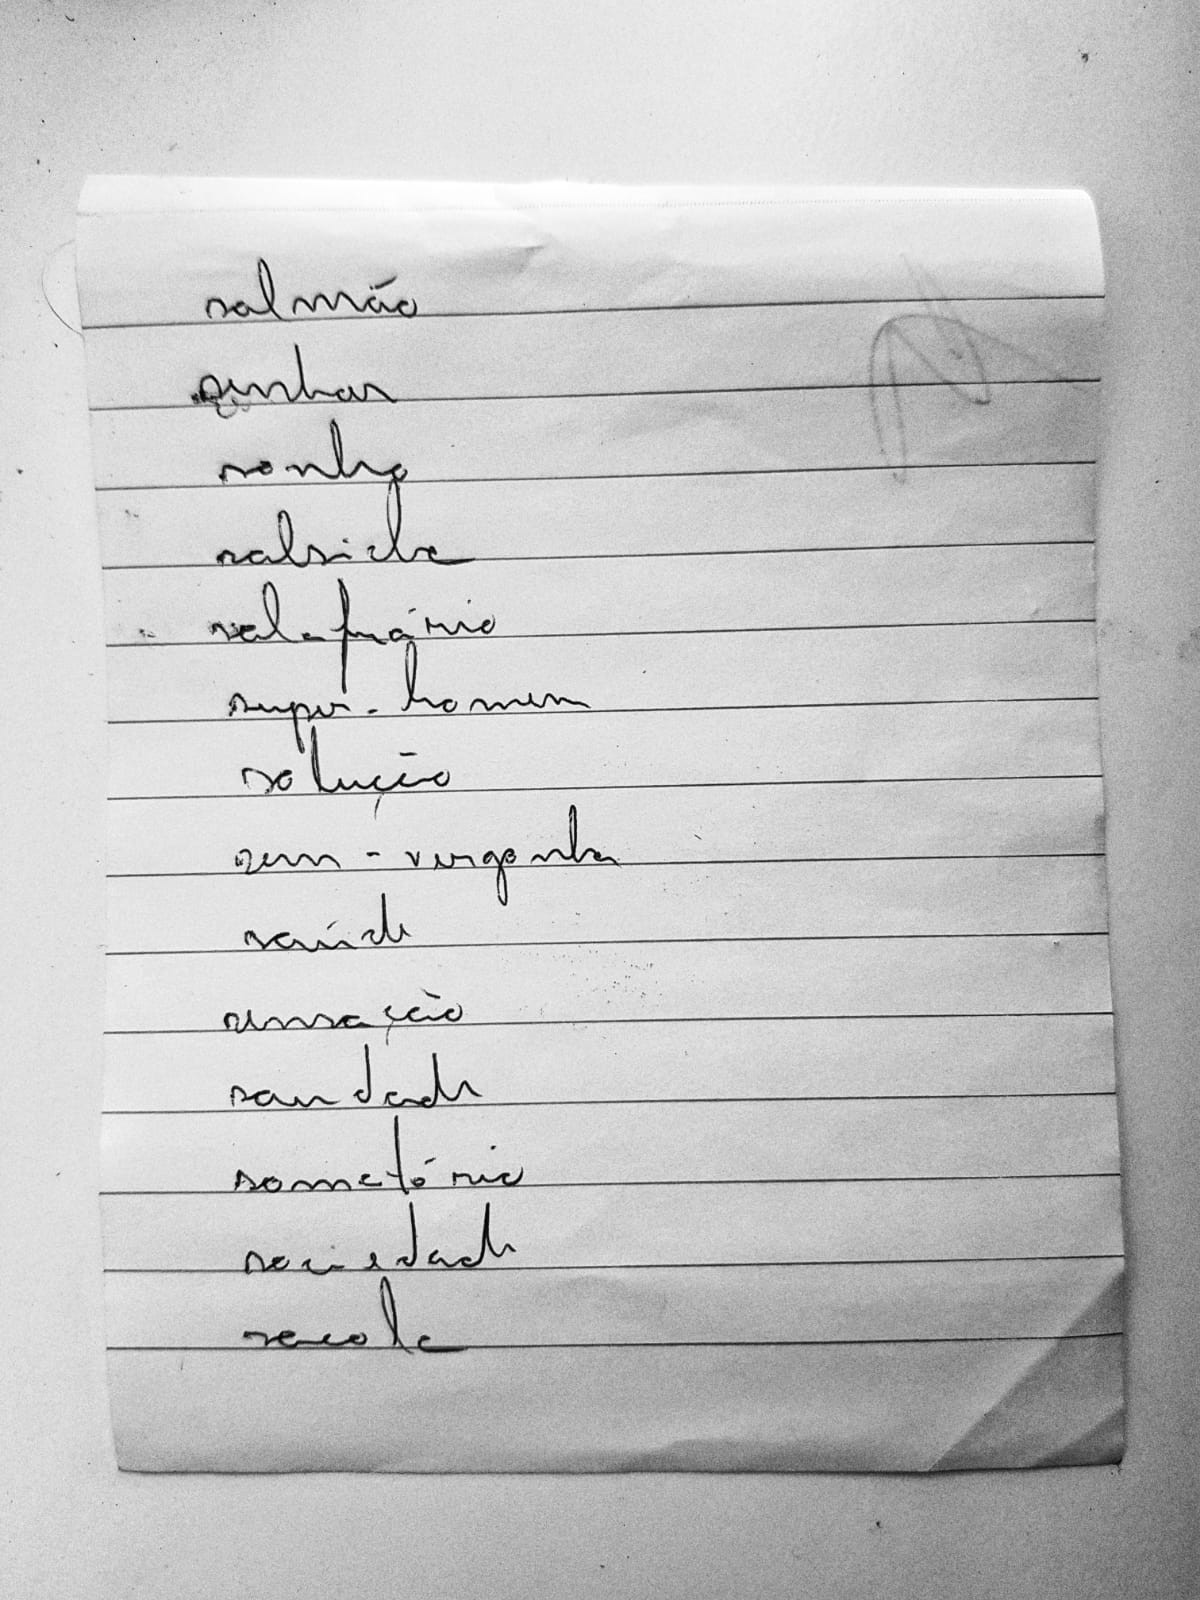 salmão
senhor
sonho
salsicha
salafrário
super-homem
solução
sem-vergonha
saúde
sensação
saudade
somatório
sociedade
sacola